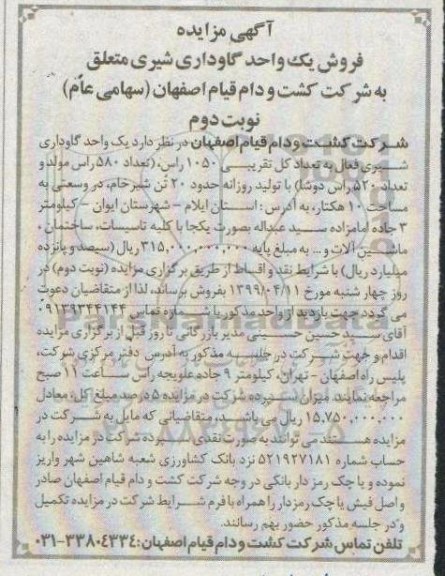 آگهی مزایده
فروش یک واحد گاوداری شیری متعلق
به شرکت کشت و دام قیام اصفهان (سهامی عام)
نوبت دوم
شرکت کشت و دام قیام اصفهان در نظر دارد یک واحد گاوداری
شیری فعال به تعداد کل تقریبی ۱۰۵۰ راس، (تعداد ۵۸۰ راس مولد و
تعداد ۵۲۰ راس دوشا) با تولید روزانه حدود ۲۰ تن شیرخام، در وسعتی به
مساحت ۱۰ هکتار، به آدرس: استان ایلام - شهرستان ایوان - کیلومتر
۳ جاده امامزاده سید عبداله بصورت یکجا با کلیه تاسیسات، ساختمان،
ماشین آلات و ... به مبلغ پایه ۳۱۵,۰۰۰,۰۰۰,۰۰۰ ریال (سیصد و پانزده
میلیارد ریال) با شرایط نقد و اقساط از طریق برگزاری مزایده (نوبت دوم) در
روز چهارشنبه مورخ ۱۳۹۹/۰۴/۱۱ بفروش برساند، لذا از متقاضیان دعوت
می گردد جهت بازدید از واحد مذکور با شماره تماس ۰۹۱۳۹۳۴۴۱۴۴
آقای سید حسین حسینی مدیر بازرگانی تا روز قبل از برگزاری مزایده
اقدام و جهت شرکت در جلسه مذکور به آدرس دفتر مرکزی شرکت،
پلیس راه اصفهان - تهران، کیلومتر ۹ جاده علویجه راس ساعت ۱۱ صبح
مراجعه نمایند. میزان سپرده شرکت در مزایده ۵ درصد مبلغ کل، معادل
۱۵,۷۵۰,۰۰۰,۰۰۰ ریال می باشد، متقاضیانی که مایل به شرکت در
مزایده هستند می توانند به صورت نقدی سپرده شرکت در مزایده را به
حساب شماره ۵۲۱۹۲۷۱۸۱ نزد بانک کشاورزی شعبه شاهین شهر واریز
نموده و یا چک رمزدار بانکی در وجه شرکت کشت و دام قیام اصفهان صادر
و اصل فیش یا چک رمزدار را همراه با فرم شرایط شرکت در مزایده تکمیل
و در جلسه مذکور حضور بهم رسانند.
تلفن تماس شرکت کشت و دام قیام اصفهان: ۳۳۸۰۴۳۳۴-۰۳۱